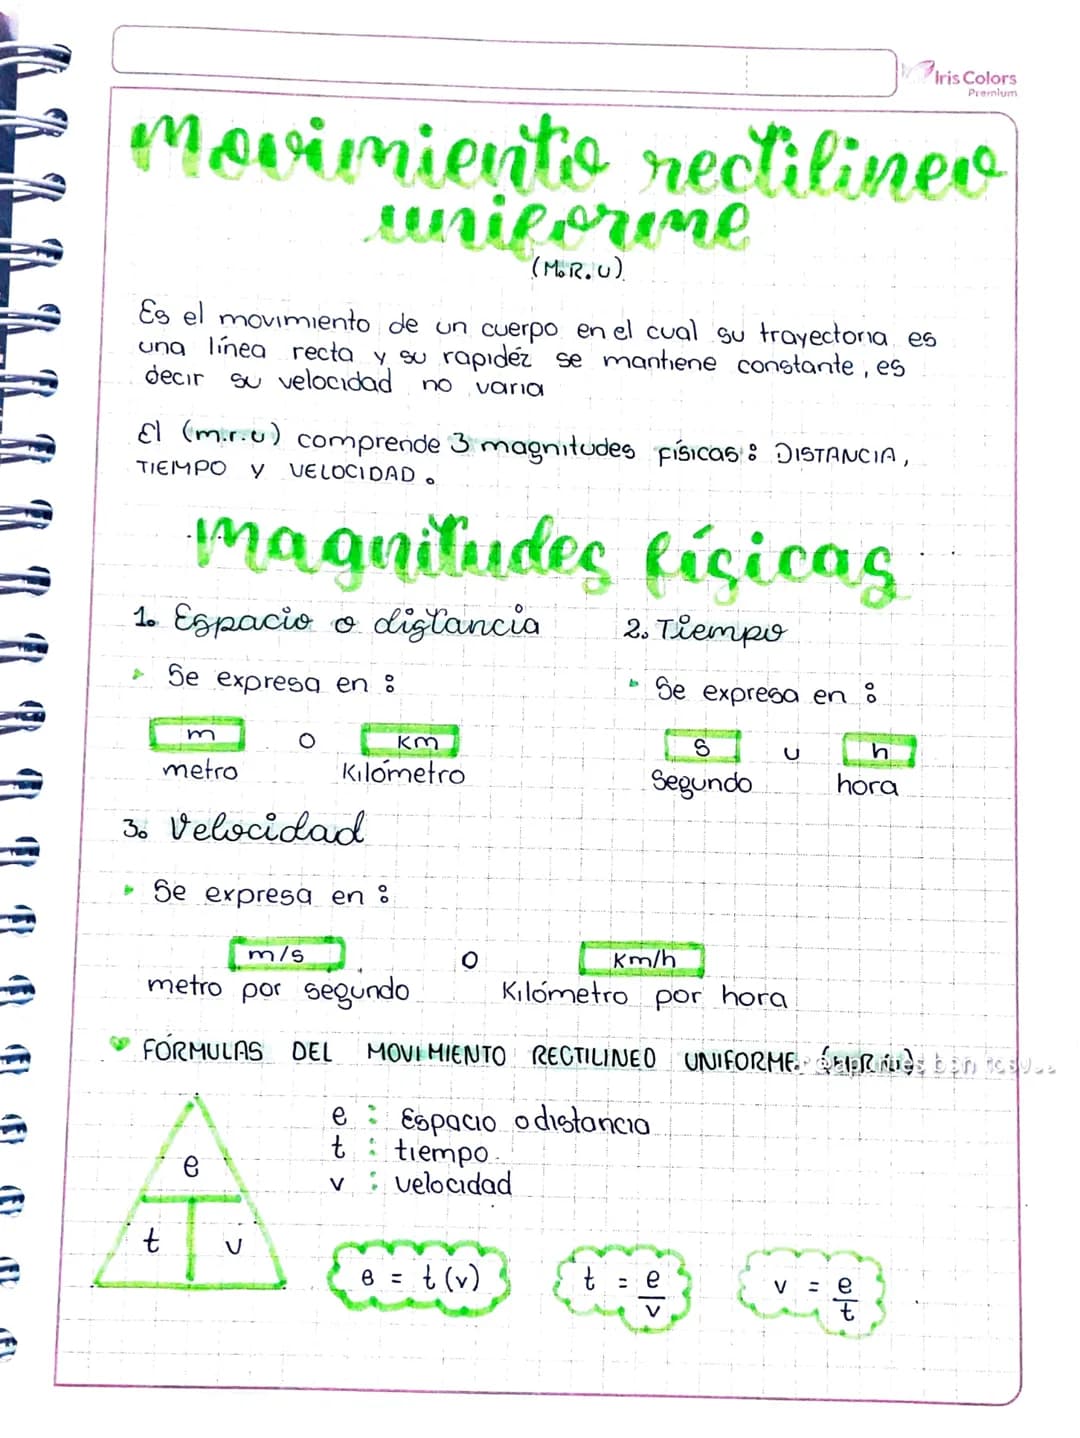 Iris Colors
Premium
Movimiento rectilineo
uniforme
(M.R.U)
Es el movimiento de un cuerpo en el cual su trayectoria es
una línea recta y su rapidéz se mantiene constante, es
decir su velocidad no varia
El (m.r.u) comprende 3 magnitudes físicas: DISTANCIA,
TIEMPO Y VELOCIDAD.
Magnitudes físicas
1. Espacio o distancia
2. Tiempo
Se expresa en:
Se expresa en:
m o km
s u h
metro Kilómetro
Segundo hora
3. Velocidad
Se expresa en:
m/s o Km/h
metro por segundo Kilómetro por hora
FÓRMULAS DEL MOVIMIENTO RECTILINEO UNIFORME. (M.R.U)
e : Espacio o distancia
t : tiempo
v : velocidad
e
t v
e = t(v)
t = e/v
v = e/t